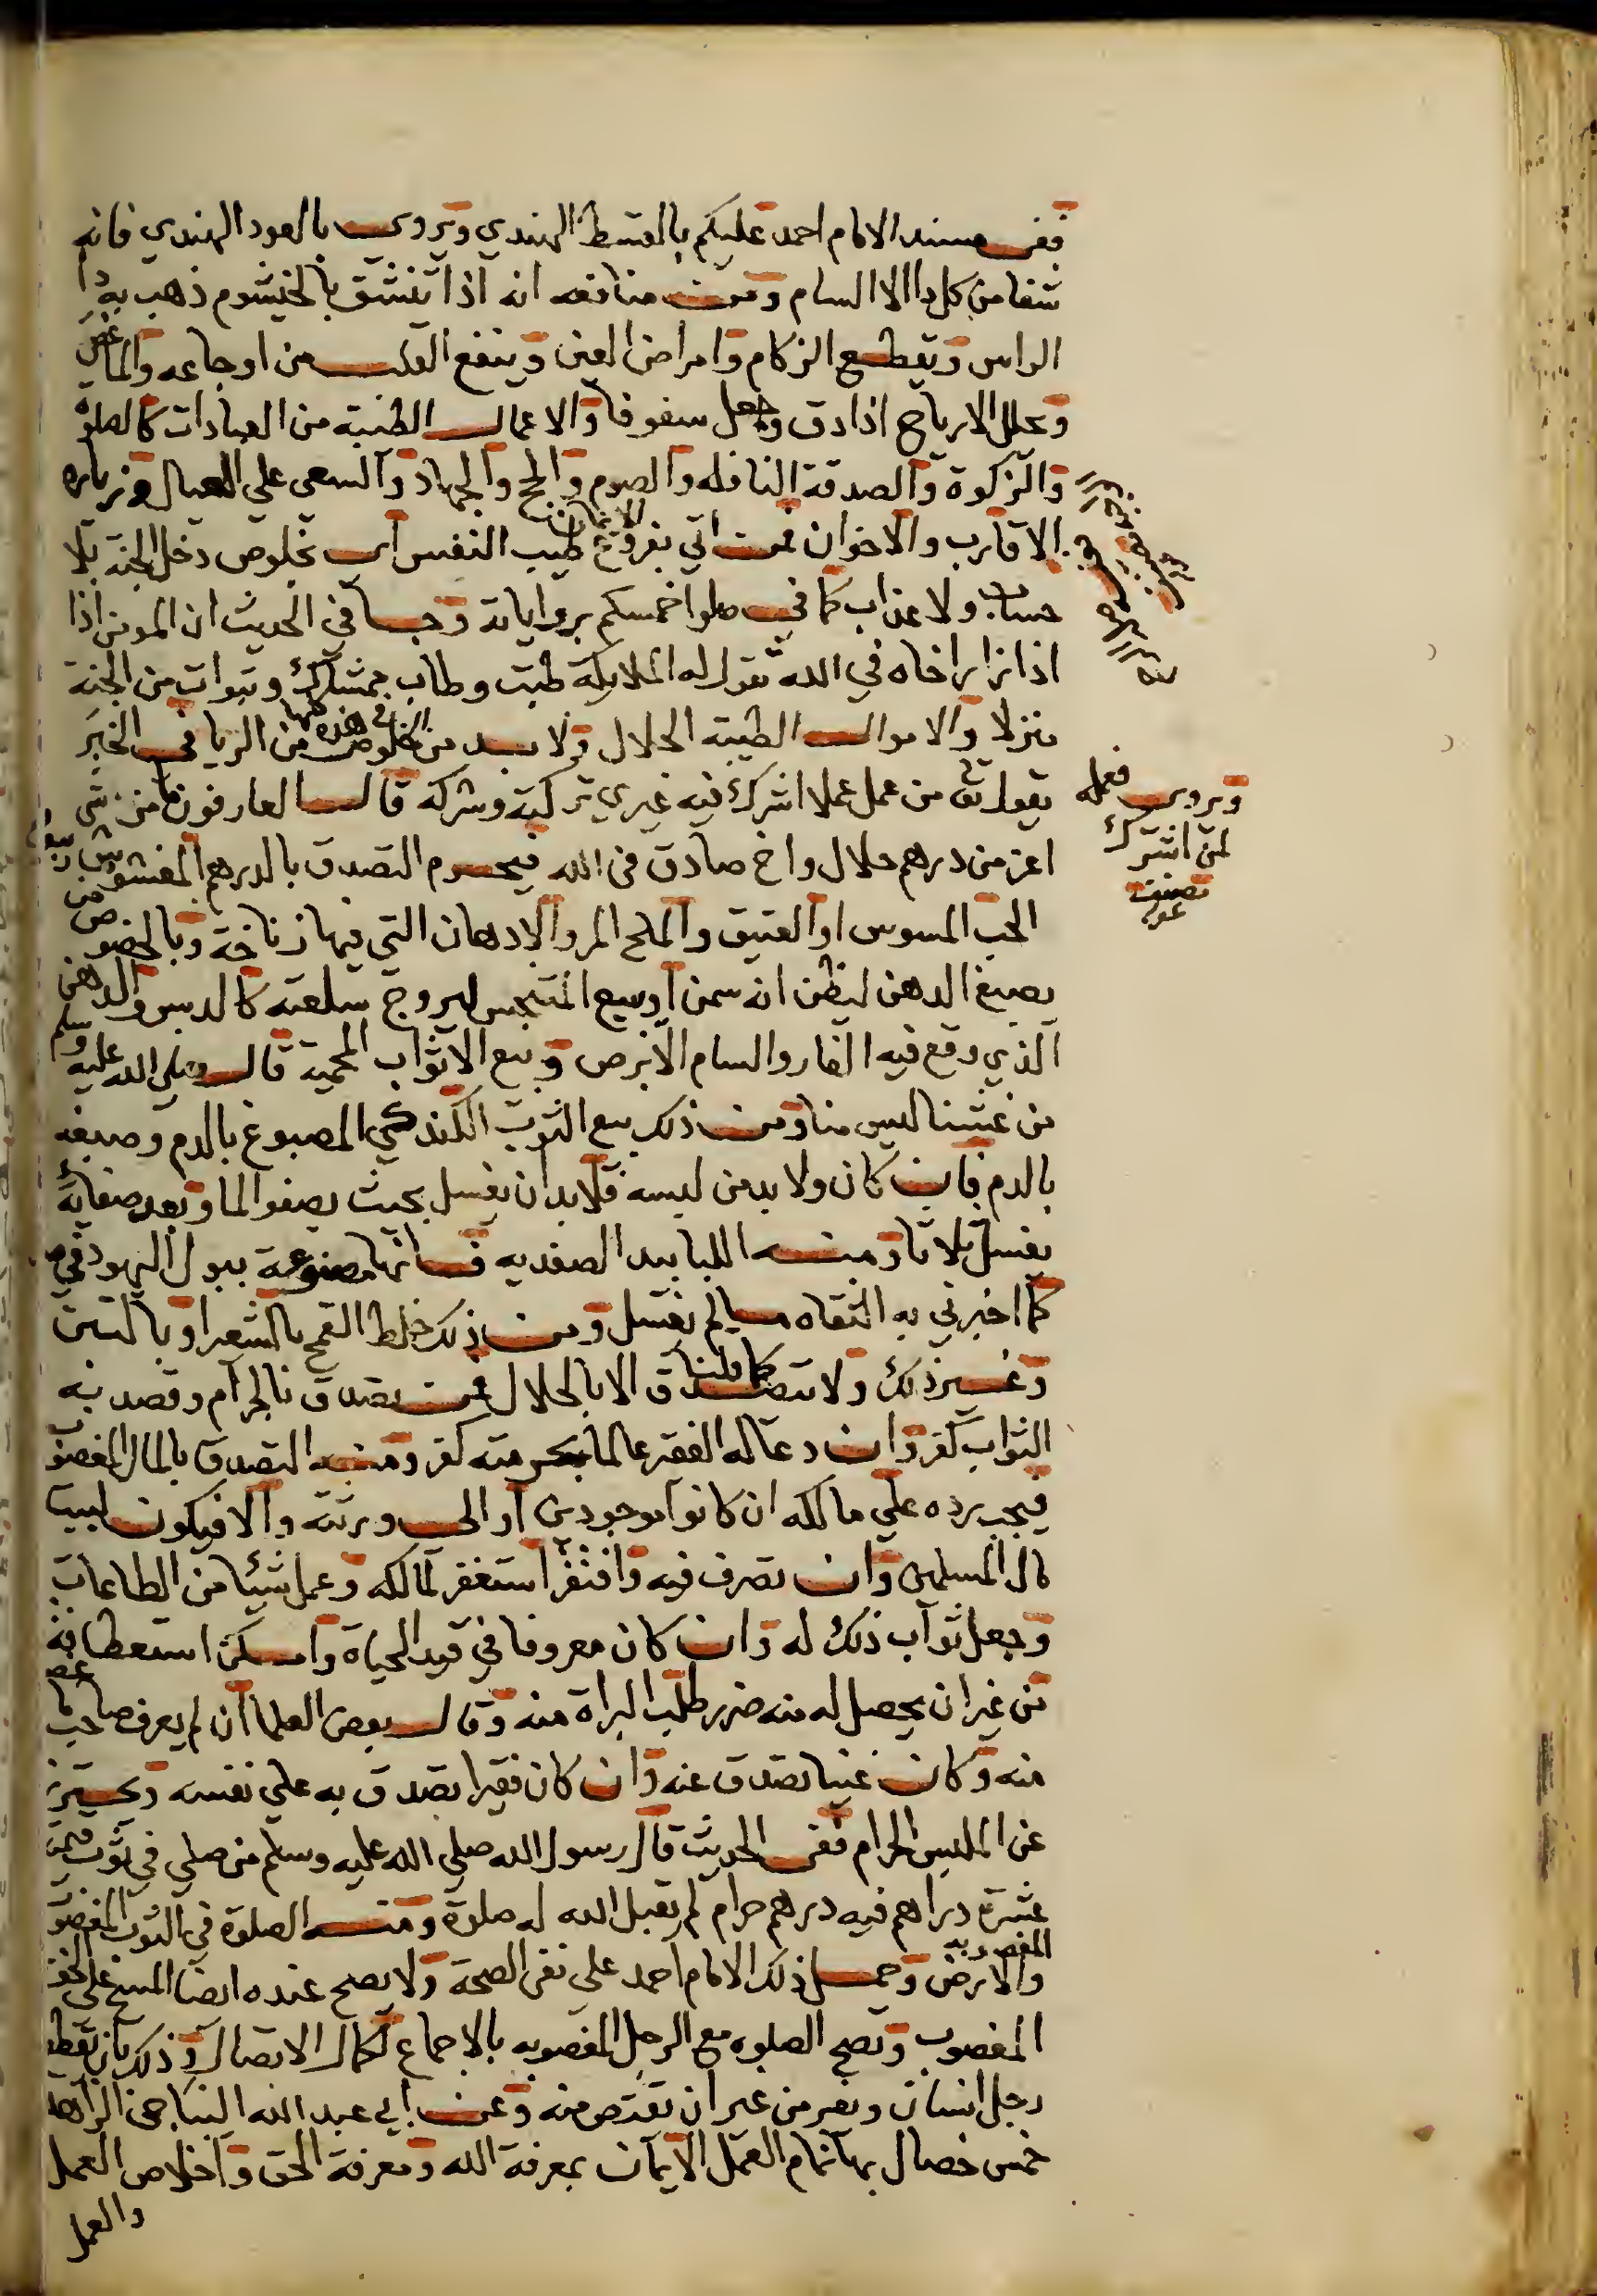 ففي مسند الامام احمد عليكم بالقسط الهندي ويروي بالعود الهندي فانه
شفا من كل دا الا السام ومن منافعه انه اذا تنشق بالخيشوم ذهب به دا
الراس ويقطع الزكام وامراض العين وينفع القلب من اوجاعه والما
ويحلل الارياح اذا دق وجعل سفوفا والاعمال الطيبة من العبادات كالصلوة
والزكوة والصدقة النافله والصوم والحج والجهاد والسعي علي العيال وزيارة
الاقارب والاخوان فمن اتي بفروع الايمان طيب النفس اي بخلوص دخل الجنة بلا
حساب ولا عذاب كما في صلوا خمسكم برواياته وجا في الحديث ان المومن اذا
اذا زار اخاه في الله تقول له الملايكة طبت وطاب ممشاك وتبوات من الجنة
منزلا والاموال الطيبة الحلال ولا بد من الخلوص في هذه كلها من الريا في الخبر
يقول تعا من عمل عملا اشرك فيه غيري تركته وشركه قال العارفون ما من شي
اعز من درهم حلال واخ صادق في الله فيحرم التصدق بالدرهم المغشوش وبيع
الحب المسوس او العتيق والملح المر والادهان التي فيها زناخة وبالخصوص من
يصبغ الدهن ليظن انه سمن او يبيع المتنجس ليروج سلعته كالدبس والدهن
الذي وقع فيه الفار والسام الابرص وبيع الاثواب المحمية قال صلي الله عليه وسلم
من غشنا ليس منا ومن ذلك بيع الثوب الكندكي المصبوغ بالدم وصبغه
بالدم فان كان ولا بد من لبسه فلا بد ان يغسل بحيث يصفو الما وبعد صفايه
يغسل ثلاثا ومنه اللبابيد الصفديه فانها مصنوعة ببول اليهود في
كما اخبرني به الثقاه ما لم يغسل ومن ذلك خلط القمح بالشعير او بالتبن
وغير ذلك ولا يتصدق كما قلنا الا بالحلال فمن تصدق بالحرام وقصد به
الثواب كفر وان دعا له الفقير عالما بحرمته كفر ومنه التصدق بالمال المغصوب
فيجب رده علي مالكه ان كانوا موجودين او الي ورثته والا فيكون لبيت
مال المسلمين وان تصرف فيه وافتقر استغفر لمالكه وعمل شيئا من الطاعات
وجعل ثواب ذلك له وان كان معروفا في قيد الحياة وامكن استعطافه
من غير ان يحصل له منه ضرر طلب البراة منه وقال بعض العلما ان لم يعرف صاحب ما غصب
منه وكان غنيا تصدق عنه وان كان فقيرا تصدق به علي نفسه ويحترز
عن الملبس الحرام ففي الحديث قال رسول الله صلي الله عليه وسلم من صلي في ثوب قيمته
عشرة دراهم فيه درهم حرام لم يقبل الله له صلوة ومنه الصلوة في الثوب المغصوب
والارض المغصوبه وحمل ذلك الامام احمد علي نفي الصحة ولا يصح عنده ايضا المسح علي الخف
المغصوب وتصح الصلوه مع الرجل المغصوبه بالاجماع لكمال الاتصال وذلك بان يقطع
رجل انسان ويفر من غير ان يقتص منه وعن ابي عبد الله النباجي الزاهد
خمس خصال بها تمام العمل الايمان بمعرفة الله ومعرفة الحق واخلاص العمل
والعمل
ويروي فعمله
لمن اشرك